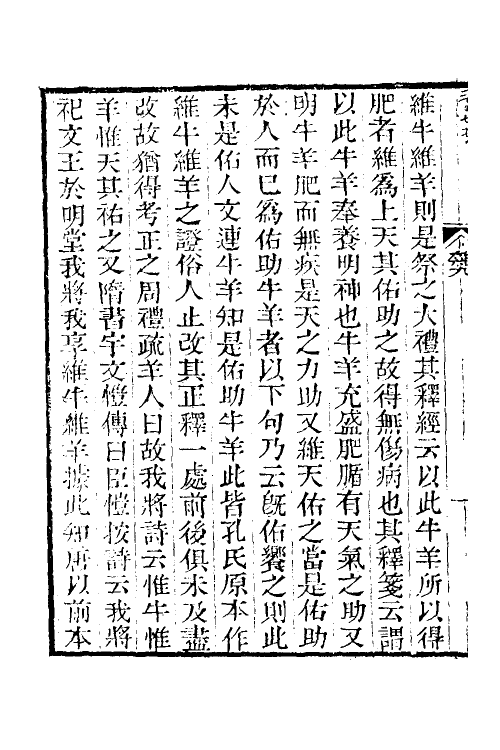 維牛維羊則是祭之大禮其釋經云以此牛羊所以得
肥者維為上天其佑助之故得無傷病也其釋箋云謂
以此牛羊奉養明神也牛羊充盛肥腯有天氣之助又
明牛羊肥而無疾是天之力助又維天佑之當是佑助
於人而已為佑助牛羊者以下句乃云旣佑饗之則此
未是佑人文連牛羊知是佑助牛羊此皆孔氏原本作
維牛維羊之證俗人止改其正釋一處前後俱未及盡
改故猶得考正之周禮疏羊人曰故我將詩云惟牛惟
羊惟天其祐之又隋書宇文愷傳曰臣愷按詩云我將
祀文王於明堂我將我享維牛維羊據此知唐以前本